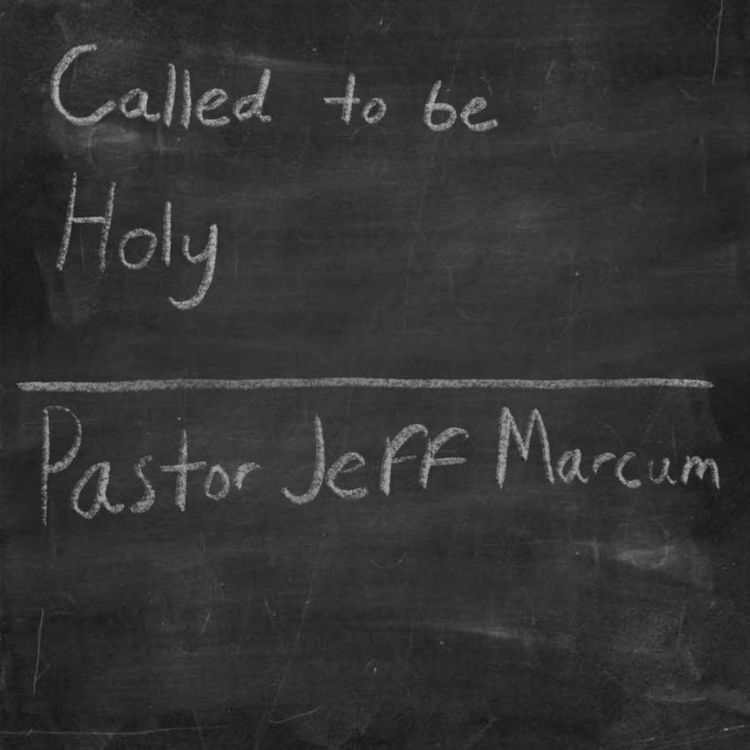 Called to be
Holy
Pastor Jeff Marcum